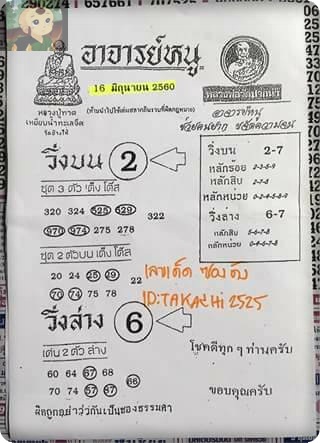 290274 657661 707501
อาจารย์หนู
16 มิถุนายน 2560
หลวงปู่ทวด
เหยียบน้ำทะเลจืด
วัดช้างให้
(ห้ามนำไปใช้เล่นสลากกินรวบที่ผิดกฎหมาย)
หลวงพ่อเงินไจยวัฒน์
อาจารย์หนู
ช่วยคนยาก ขจัดความจน
วิ่งบน 2
ชุด 3 ตัว เต็ง โต๊ส
320 324 525 529
322
970 974 275 278
ชุด 2 ตัวบน เต็ง โต๊ส
20 24 25 29
22
70 74 75 78
วิ่งบน 2-7
หลักร้อย 2-3-5-9
หลักสิบ 2-7-8
หลักหน่วย 0-2-4-5-8-9
วิ่งล่าง 6-7
หลักสิบ 5-6-7-8
หลักหน่วย 0-4-6-7-8
เลขเด็ด ซองดัง
ID:TAKACHI2525
วิ่งล่าง 6
เด่น 2 ตัว ล่าง
60 64 67 68
66
70 74 57 87
โชคดีทุก ๆ ท่านครับ
ขอบคุณครับ
ผิดถูกอย่าว่ากันเป็นของธรรมดา